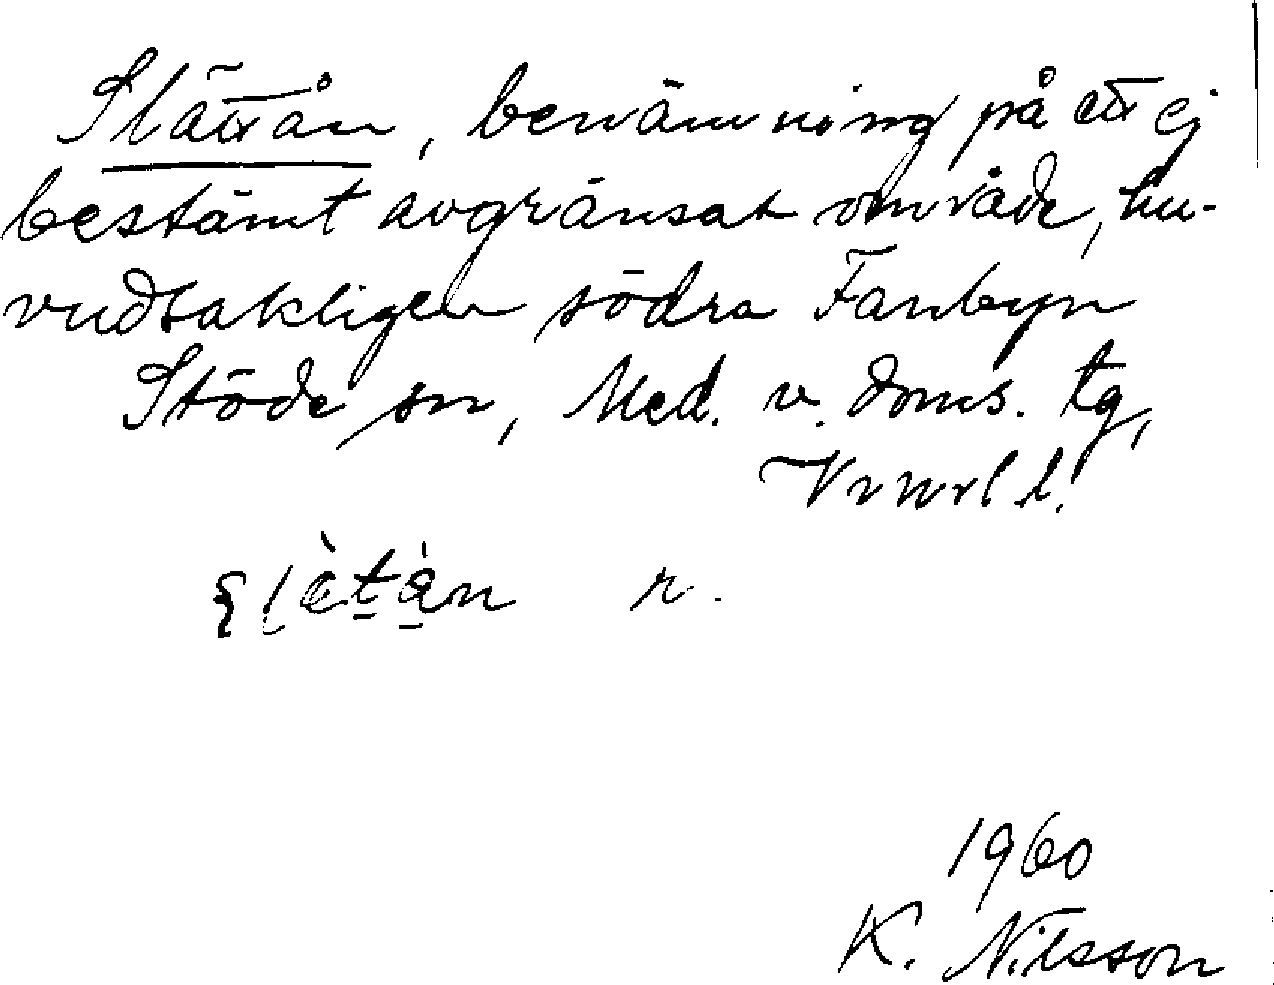 Slättån, benämning på ett ej
bestämt avgränsat område, hu-
vudsakligen södra Fanbyn
Stöde sn, Med. v. doms. tg,
Vnorl l.
n.
1960
K. Nilsson